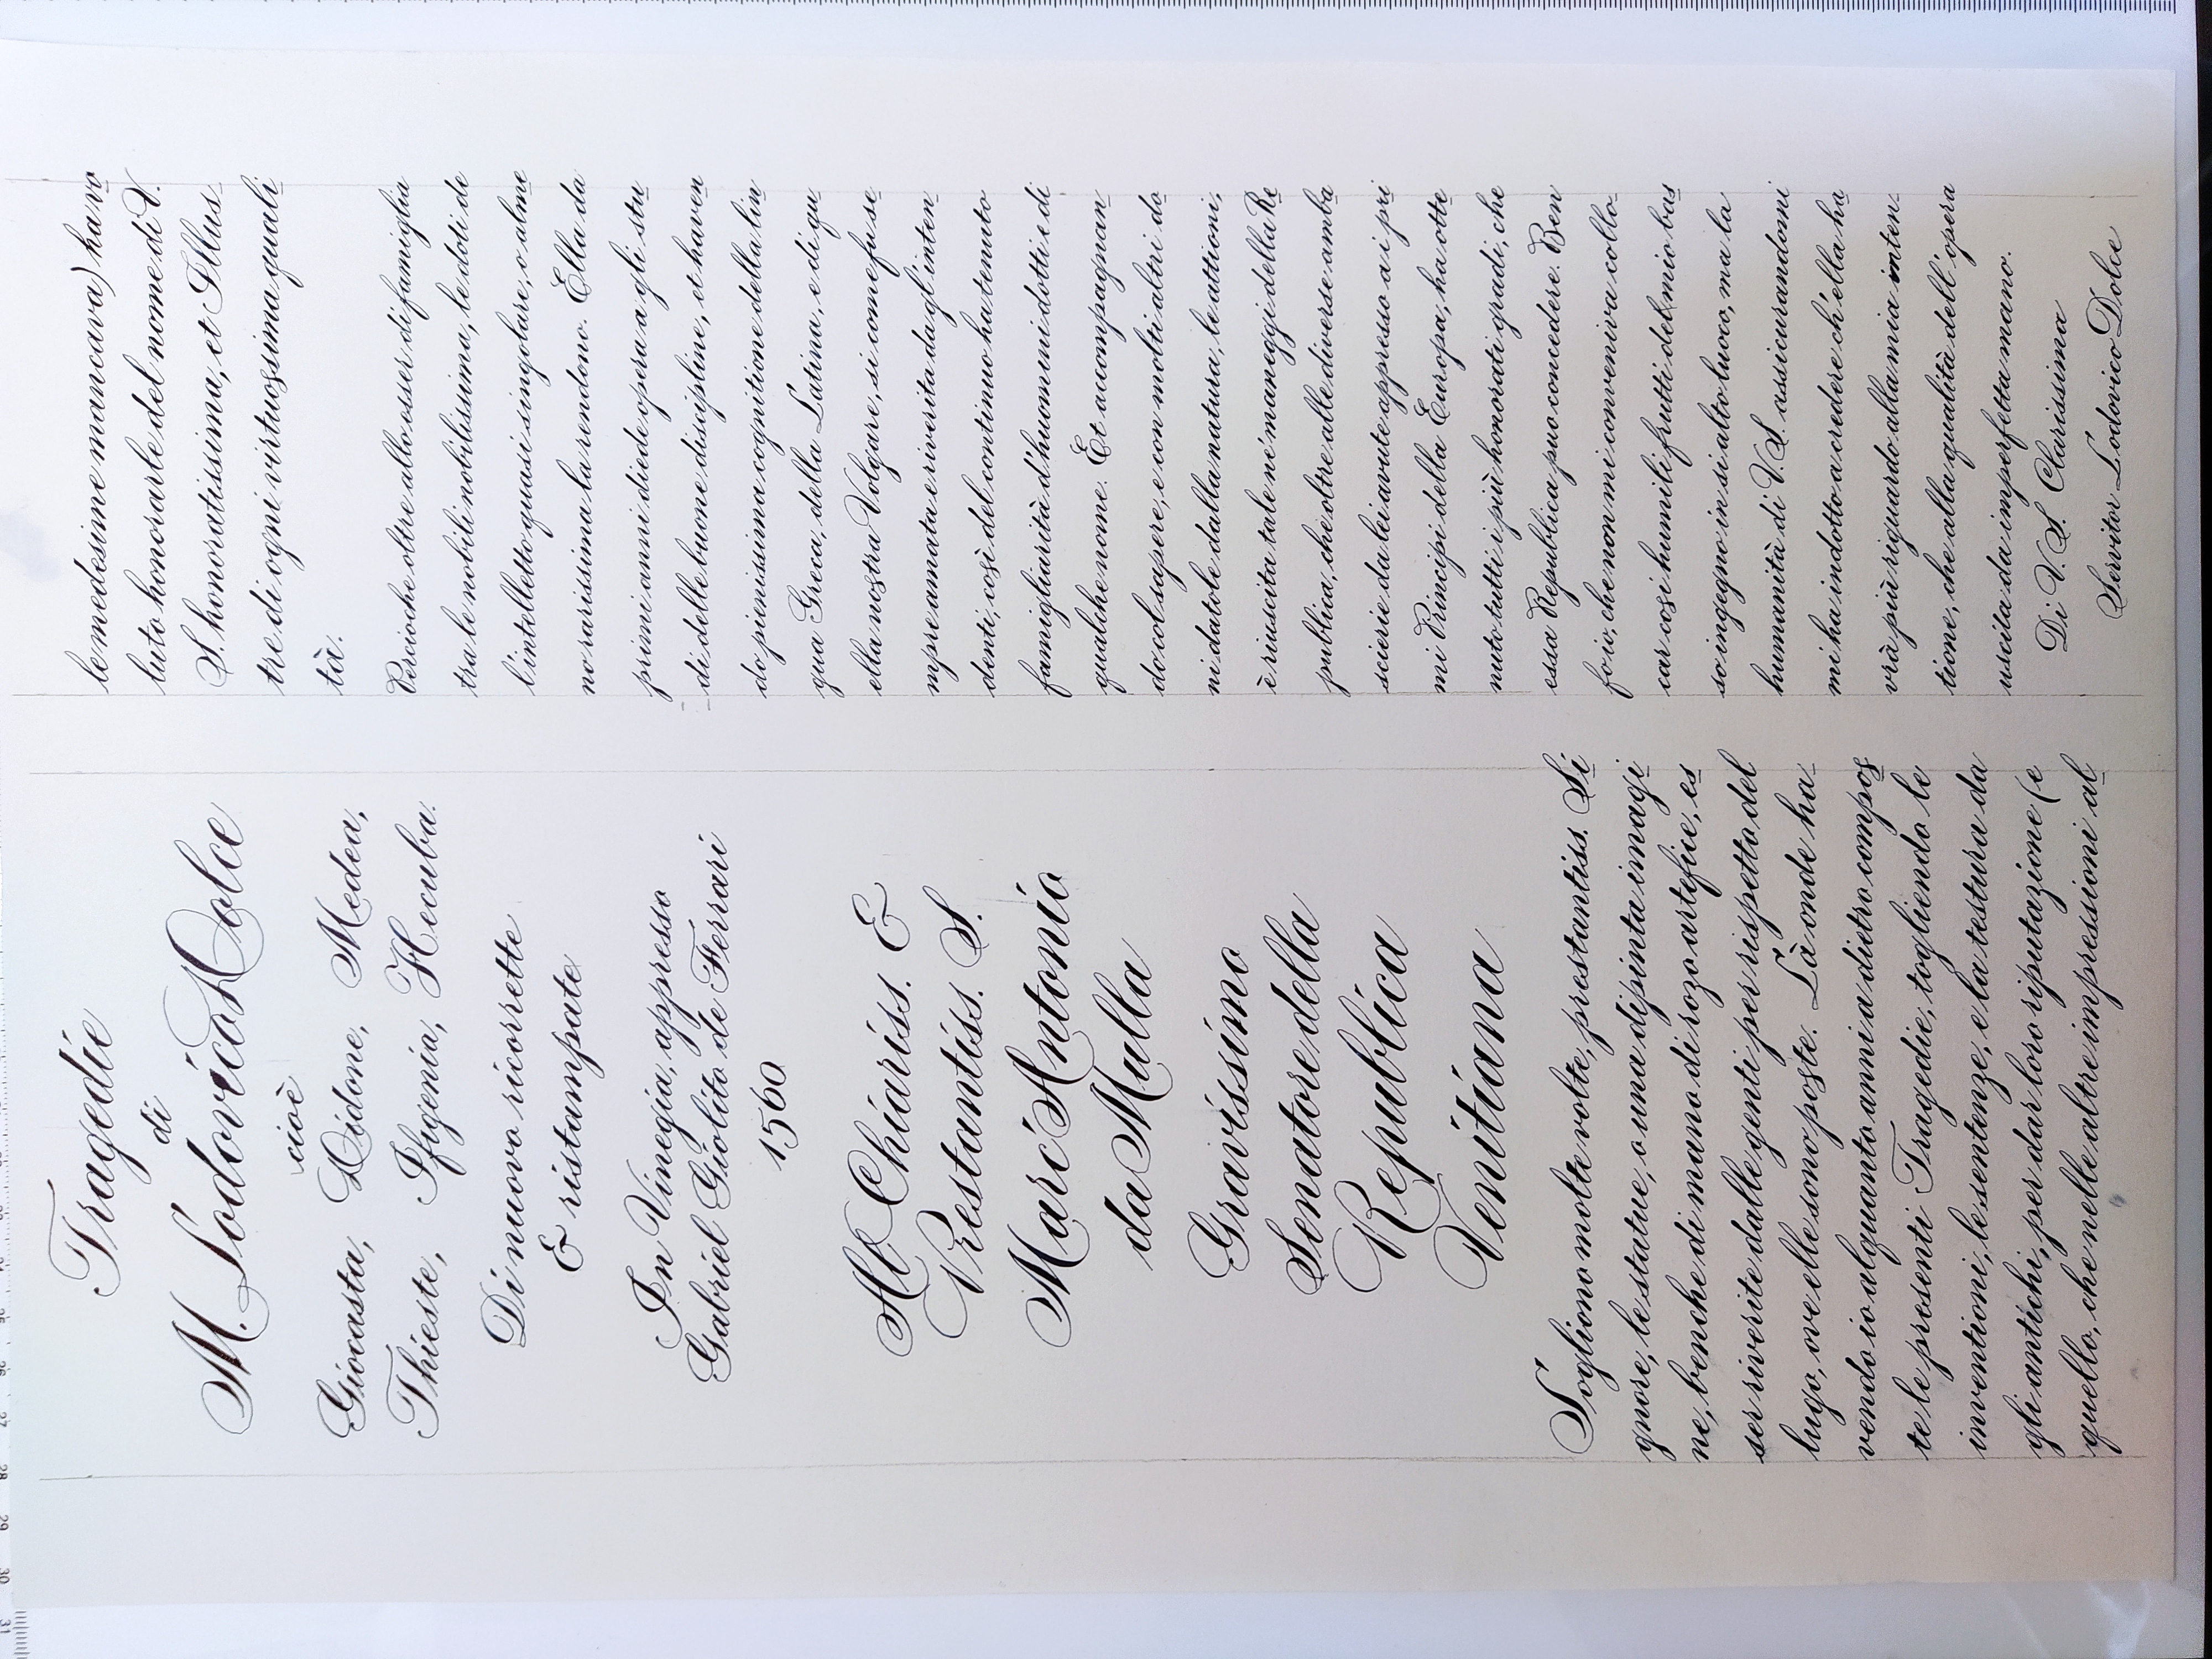 Tragedie
di
M. Lodovico Dolce
cioè
Giocasta, Didone, Medea,
Thieste, Ifigenia, Hecuba.
Di nuovo ricorrette
& ristampate
In Vinegia, appresso
Gabriel Giolito de Ferrari
1560
Al Chiariss. &
Prestantiss. S.
Marc'Antonio
da Mulla
Gravissimo
Senatore della
Republica
Venitiana
Sogliono molte volte, prestantiss. Si
gnore, le statue, o una dipinta imagi
ne, benche di mano di rozo artefice, es
ser riverite dalle genti per rispetto del
lugo, ove elle sono poste. Là onde ha
vendo io alquanto anni a dietro compos
te le presenti Tragedie, togliendo le
inventioni, le sentenze, e la testura da
gli antichi, per dar loro riputazione (e
quello, che nelle altre impressioni al
le medesime mancava) ha vo
luto honorarle del nome di V.
S. honoratissima, et Illus
tre di ogni virtuosissima quali
tà.
Percioche oltre allo esser di famiglia
tra le nobili nobilissima, le doti de
l'intelletto quasi singolare, o alme
no rarissima la rendono. Ella da
primi anni diede opera a gli stu
di delle buone discipline, et haven
do pienissima cognitione della lin
gua Greca, della Latina, e di qu
ella nostra Volgare, si come fu se
mpre amata e riverita da gl'inten
denti, così del continuo ha tenuto
famigliarità d'huomini dotti e di
qualche nome. Et accompagnan
do col sapere, e con molti altri do
ni datole dalla natura, le attioni,
è riuscita tale ne i maneggi della Re
publica, che oltre alle diverse amba
scierie da lei avute appresso a i pri
mi Principi della Europa, ha otte
nuto tutti i più honorati gradi, che
essa Republica puo concedere. Ben
fo io, che non mi conveniva collo
car cosi humili frutti del mio bas
so ingegno in si alto luoco, ma la
humanità di V.S. assicurandomi
mi ha indotto a credere ch'ella ha
vrà più riguardo alla mia inten
tione, che alla qualità dell'opera
uscita da imperfetta mano.
Di V. S. Clarissima
Servitor Lodovico Dolce